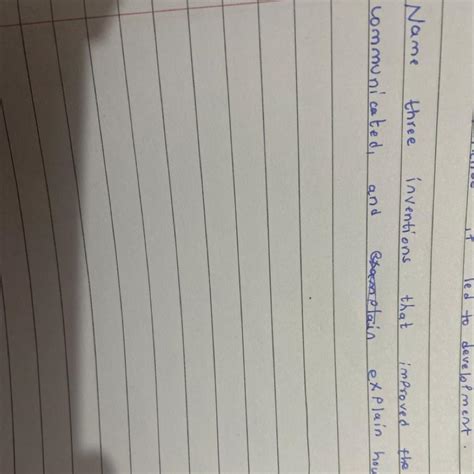 it led to development.
Name three inventions that improved the
communicated, and explain how